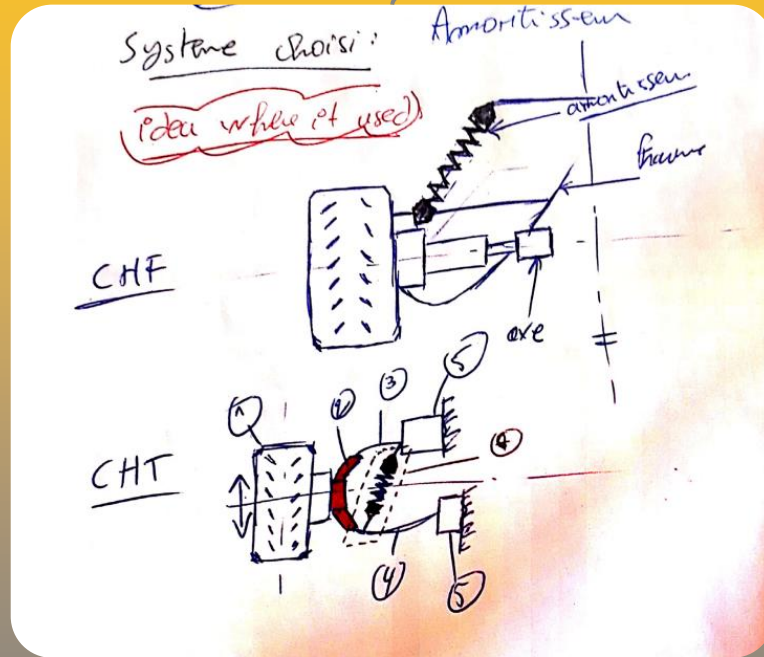 Système choisi:
Amoritisseur
idea where it used
amortisseur
frame
CHF
axe
5
1
2
3
CHT
4
5